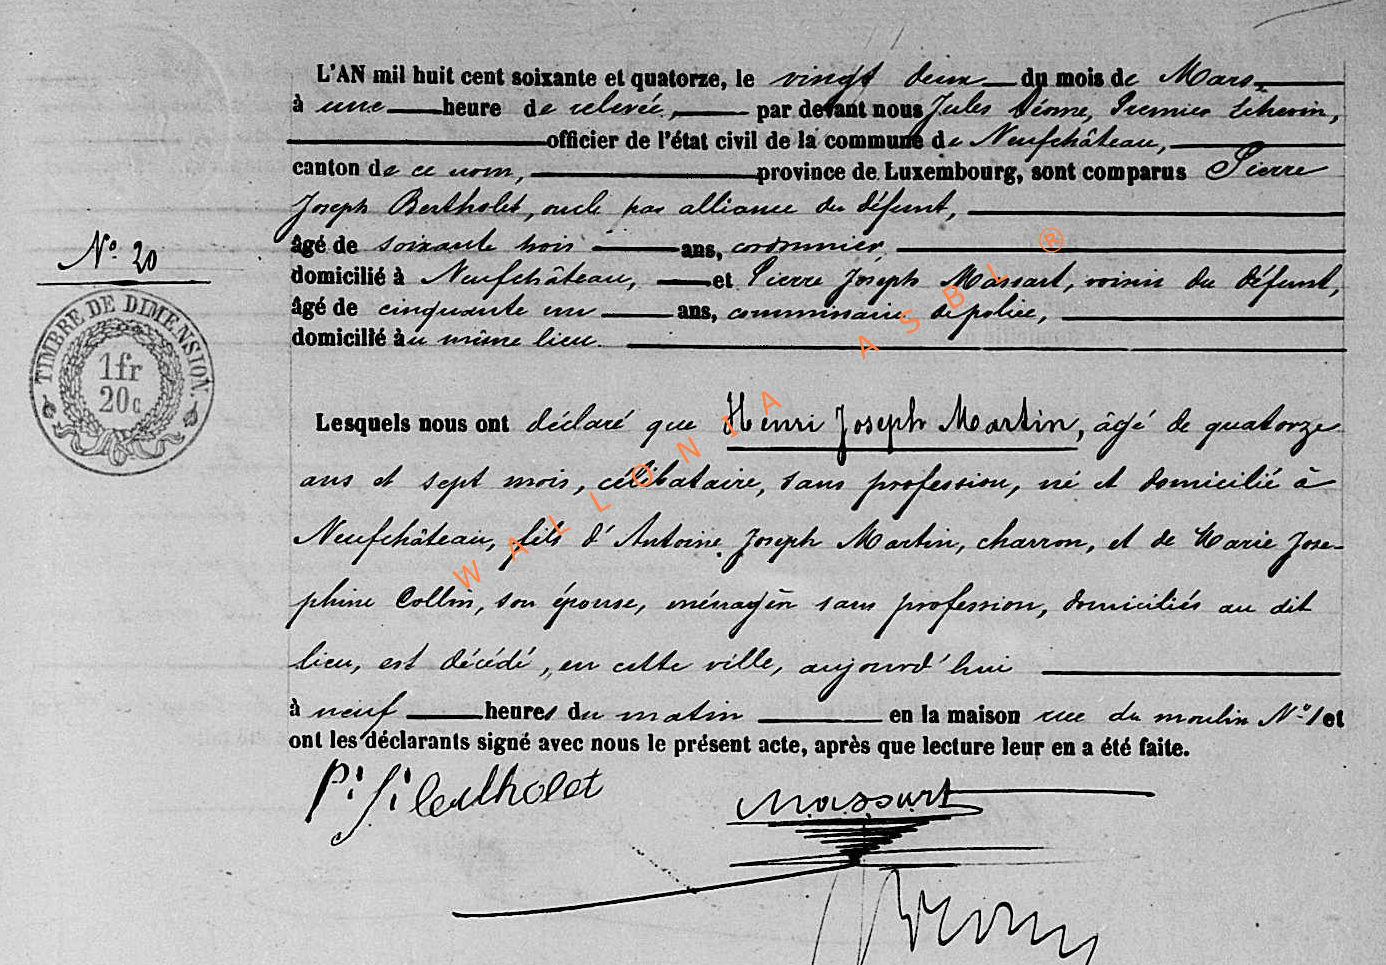 L'AN mil huit cent soixante et quatorze, le vingt deux du mois de Mars
à une heure de relevée, par devant nous Jules Premier Echevin,
officier de l'état civil de la commune de Neufchâteau,
canton de ce nom, province de Luxembourg, sont comparus Pierre
Joseph Bertholet, oncle par alliance du défunt,
âgé de soixante trois ans, cordonnier,
N° 20
domicilié à Neufchâteau, et Pierre Joseph Massart, voisin du défunt,
âgé de cinquante un ans, commissaire de police,
domicilié au même lieu
TIMBRE DE DIMENSION.
1fr
20c
Lesquels nous ont déclaré que Henri Joseph Martin, âgé de quatorze
ans et sept mois, célibataire, sans profession, né et domicilié à
Neufchâteau, fils d'Antoine Joseph Martin, charron, et de Marie Jose-
phine Collin, son épouse, sans profession, domiciliés au dit
lieu, est décédé, en cette ville, aujourd'hui
à neuf heures du matin en la maison rue du moulin N° 1 et
ont les déclarants signé avec nous le présent acte, après que lecture leur en a été faite.
P. J. Bertholet
Massart
WALLONIA ASBL ®